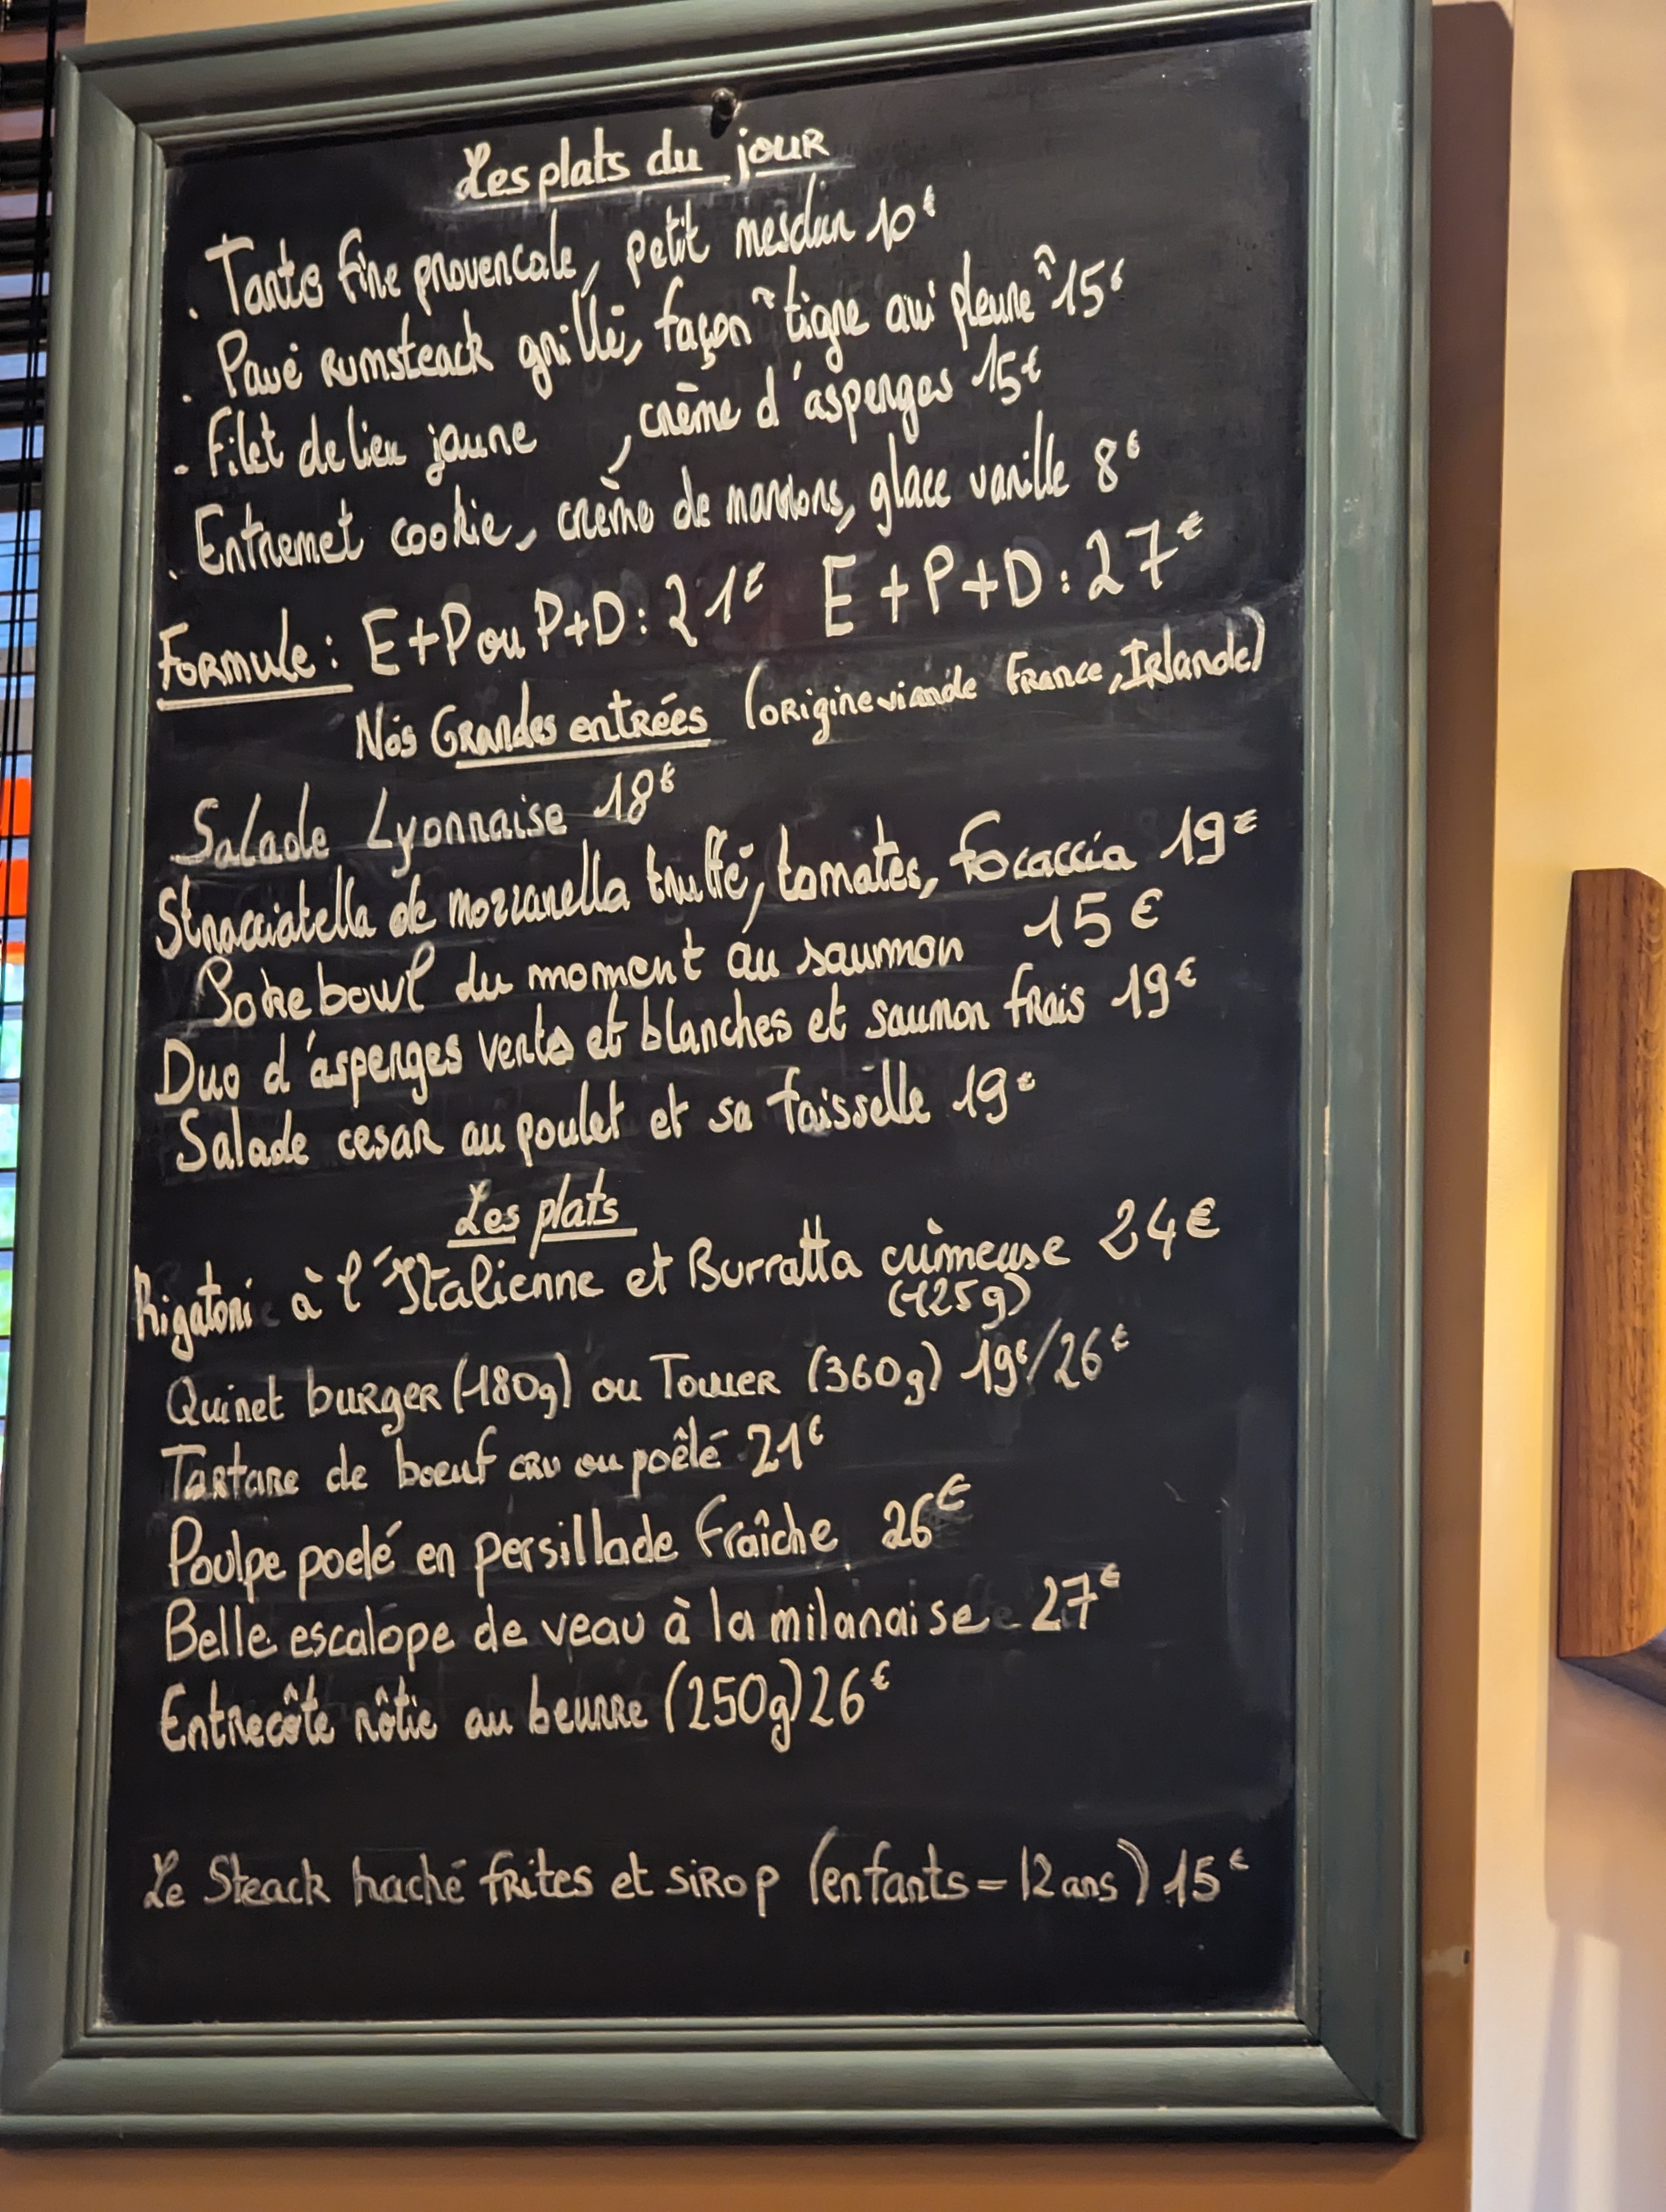 Les plats du jour
. Tarte fine provencale, petit mesclun 10€
. Pavé rumsteack grillé, façon "tigre qui pleure" 15€
- Filet de lieu jaune , crème d'asperges 15€
. Entremet cookie, crème de marrons, glace vanille 8€
Formule : E+P ou P+D : 21€ E+P+D : 27€
Nos Grandes entrées (origine viande France, Irlande)
Salade Lyonnaise 18€
Stracciatella de mozzarella truffé, tomates, focaccia 19€
Pokebowl du moment au saumon 15€
Duo d'asperges vertes et blanches et saumon frais 19€
Salade cesar au poulet et sa faisselle 19€
Les plats
Rigatoni à l'Italienne et Burratta crèmeuse 24€
(125g)
Quinet burger (180g) ou Tower (360g) 19€/26€
Tartare de boeuf cru ou poêlé 21€
Poulpe poelé en persillade fraîche 26€
Belle escalope de veau à la milanaise 27€
Entrecôte rôtie au beurre (250g) 26€
Le Steack haché frites et sirop (enfants - 12 ans) 15€